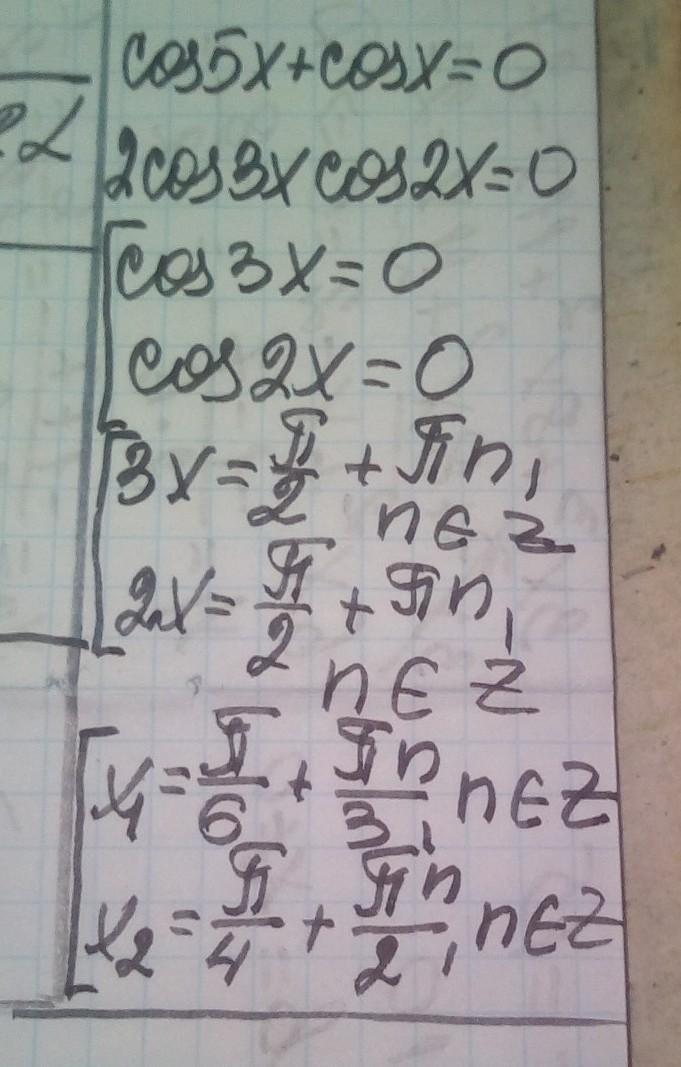 cos5x+cosx=0
2cos3x cos2x=0
cos3x=0
cos2x=0
3x=π/2+πn,
n∈Z
2x=π/2+πn,
n∈Z
x₁=π/6+πn/3, n∈Z
x₂=π/4+πn/2, n∈Z